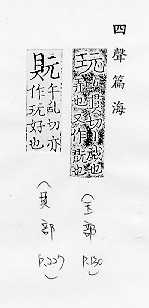 四聲篇海
玩
也又作
(玉部 P.130)
貦 午亂切亦作玩好也
(貝部 P.227)